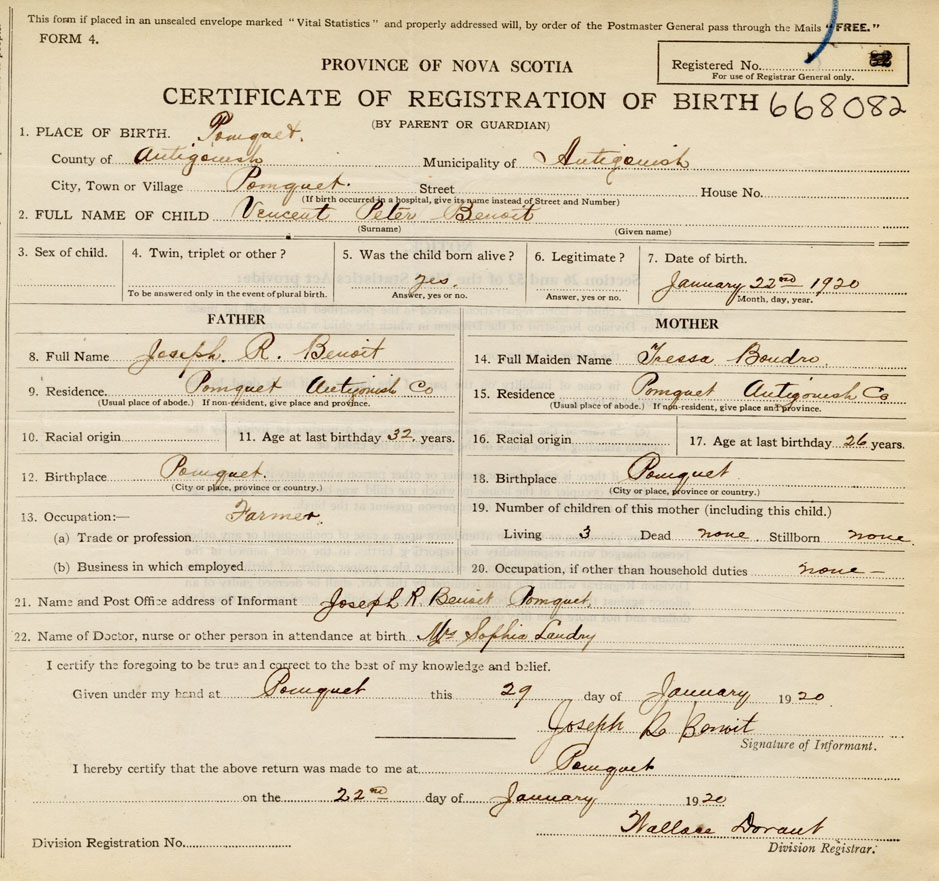 This form if placed in an unsealed envelope marked "Vital Statistics" and properly addressed will, by order of the Postmaster General pass through the Mails "FREE."
FORM 4.
Registered No.
For use of Registrar General only.
PROVINCE OF NOVA SCOTIA
CERTIFICATE OF REGISTRATION OF BIRTH 668082
(BY PARENT OR GUARDIAN)
1. PLACE OF BIRTH. Pomquet.
County of Antigonish Municipality of Antigonish
City, Town or Village Pomquet. Street House No.
(If birth occurred in a hospital, give its name instead of Street and Number)
2. FULL NAME OF CHILD Vencent Peter Benoit
(Surname) (Given name)
3. Sex of child. 4. Twin, triplet or other? 5. Was the child born alive? 6. Legitimate? 7. Date of birth.
yes. January 22nd 1920
To be answered only in the event of plural birth. Answer, yes or no. Answer, yes or no. Month, day, year.
FATHER MOTHER
8. Full Name Joseph. R. Benoit 14. Full Maiden Name Tressa Boudro
9. Residence Pomquet Antigonish Co 15. Residence Pomquet Antigonish Co
(Usual place of abode.) If non-resident, give place and province. (Usual place of abode.) If non-resident, give place and province.
10. Racial origin 11. Age at last birthday 32. years. 16. Racial origin 17. Age at last birthday 26 years.
12. Birthplace Pomquet. 18. Birthplace Pomquet
(City or place, province or country.) (City or place, province or country.)
13. Occupation:— Farmer. 19. Number of children of this mother (including this child.)
(a) Trade or profession Living 3 Dead none. Stillborn none.
(b) Business in which employed 20. Occupation, if other than household duties none—
21. Name and Post Office address of Informant Joseph R Benoit Pomquet.
22. Name of Doctor, nurse or other person in attendance at birth Mrs Sophia Landry
I certify the foregoing to be true and correct to the best of my knowledge and belief.
Given under my hand at Pomquet this 29 day of January 1920
Joseph R Benoit
Signature of Informant.
I hereby certify that the above return was made to me at Pomquet
on the 22nd day of January 1920
Wallace Dorant
Division Registration No. Division Registrar.